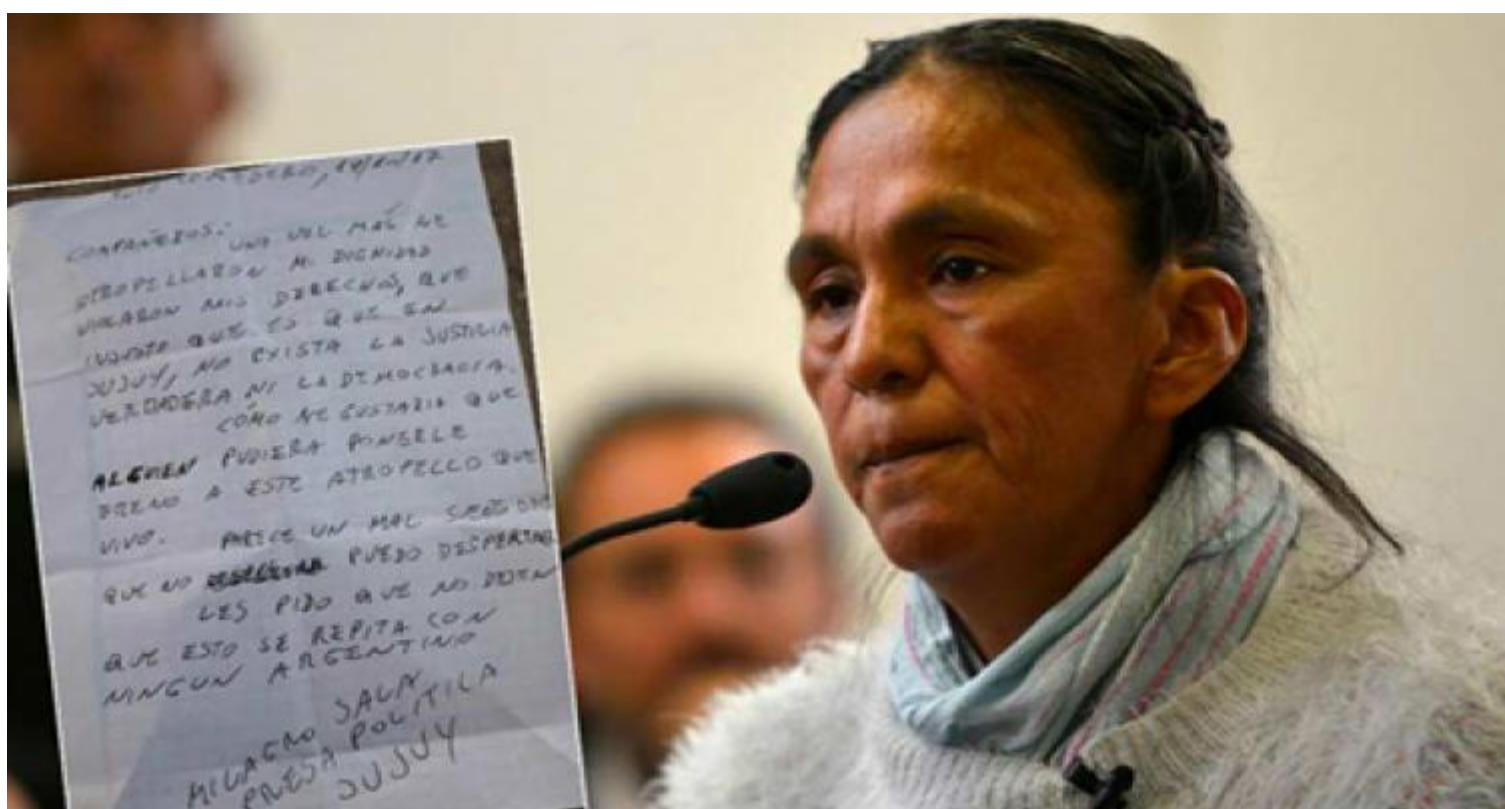 COMPAÑEROS:
UNA VEZ MÁS ME
ATROPELLARON MI DIGNIDAD
VIOLARON MIS DERECHOS, QUE
INJUSTO QUE ES QUE EN
JUJUY, NO EXISTA LA JUSTICIA
VERDADERA NI LA DEMOCRACIA.
CÓMO ME GUSTARIA QUE
ALGUIEN PUDIERA PONERLE
FRENO A ESTE ATROPELLO QUE
VIVO. PARECE UN MAL SUEÑO DEL
QUE NO PUEDO DESPERTAR
LES PIDO QUE NO DEJEN
QUE ESTO SE REPITA CON
NINGUN ARGENTINO
MILAGRO SALA
PRESA POLITICA
JUJUY